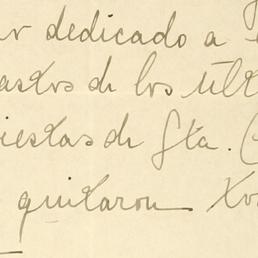 dedicado a
astos de los últ
iestas de Sta. C
quitaron